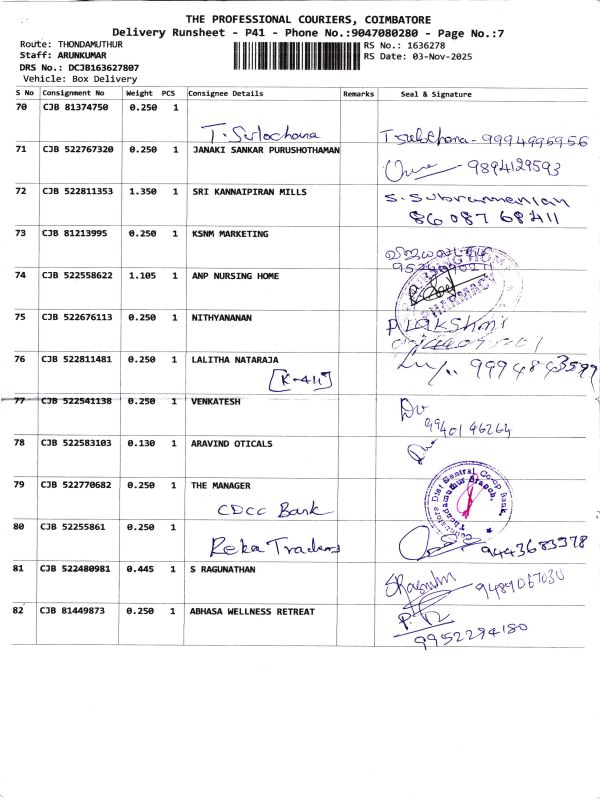 THE PROFESSIONAL COURIERS, COIMBATORE
Delivery Runsheet - P41 - Phone No.:9047080280 - Page No.:7
Route: THONDAMUTHUR RS No.: 1636278
Staff: ARUNKUMAR RS Date: 03-Nov-2025
DRS No.: DCJB163627807
Vehicle: Box Delivery
S No Consignment No Weight PCS Consignee Details Remarks Seal & Signature
70 CJB 81374750 0.250 1
T. Sulochana T Sulochana - 9994995956
71 CJB 522767320 0.250 1 JANAKI SANKAR PURUSHOTHAMAN
9894129593
72 CJB 522811353 1.350 1 SRI KANNAIPIRAN MILLS S. Subramanian
86087 68411
73 CJB 81213995 0.250 1 KSNM MARKETING
74 CJB 522558622 1.105 1 ANP NURSING HOME
PHARMACY
75 CJB 522676113 0.250 1 NITHYANANAN P. Lakshmi
76 CJB 522811481 0.250 1 LALITHA NATARAJA
[K-411]
77 CJB 522541138 0.250 1 VENKATESH
9940146264
78 CJB 522583103 0.130 1 ARAVIND OTICALS
79 CJB 522770682 0.250 1 THE MANAGER
CDCC Bank
Coimbatore Dist Central Co-op Bank,
Thondamuthur Branch.
80 CJB 52255861 0.250 1
Reka Traders 9443683378
81 CJB 522480981 0.445 1 S RAGUNATHAN
82 CJB 81449873 0.250 1 ABHASA WELLNESS RETREAT
9952294180